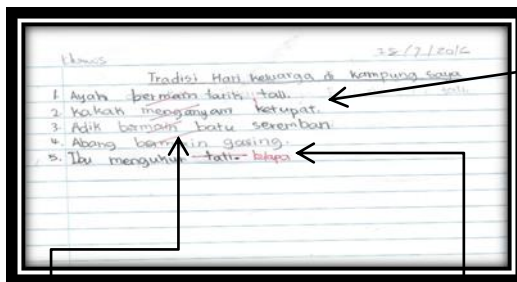 Khamis 28/7/2016
Tradisi Hari keluarga di kampung saya
1. Ayah bermain tarik tali.
tali.
2. Kakak menganyam ketupat.
3. Adik bermain batu seremban.
4. Abang bermain gasing.
5. Ibu mengukur tali. kelapa